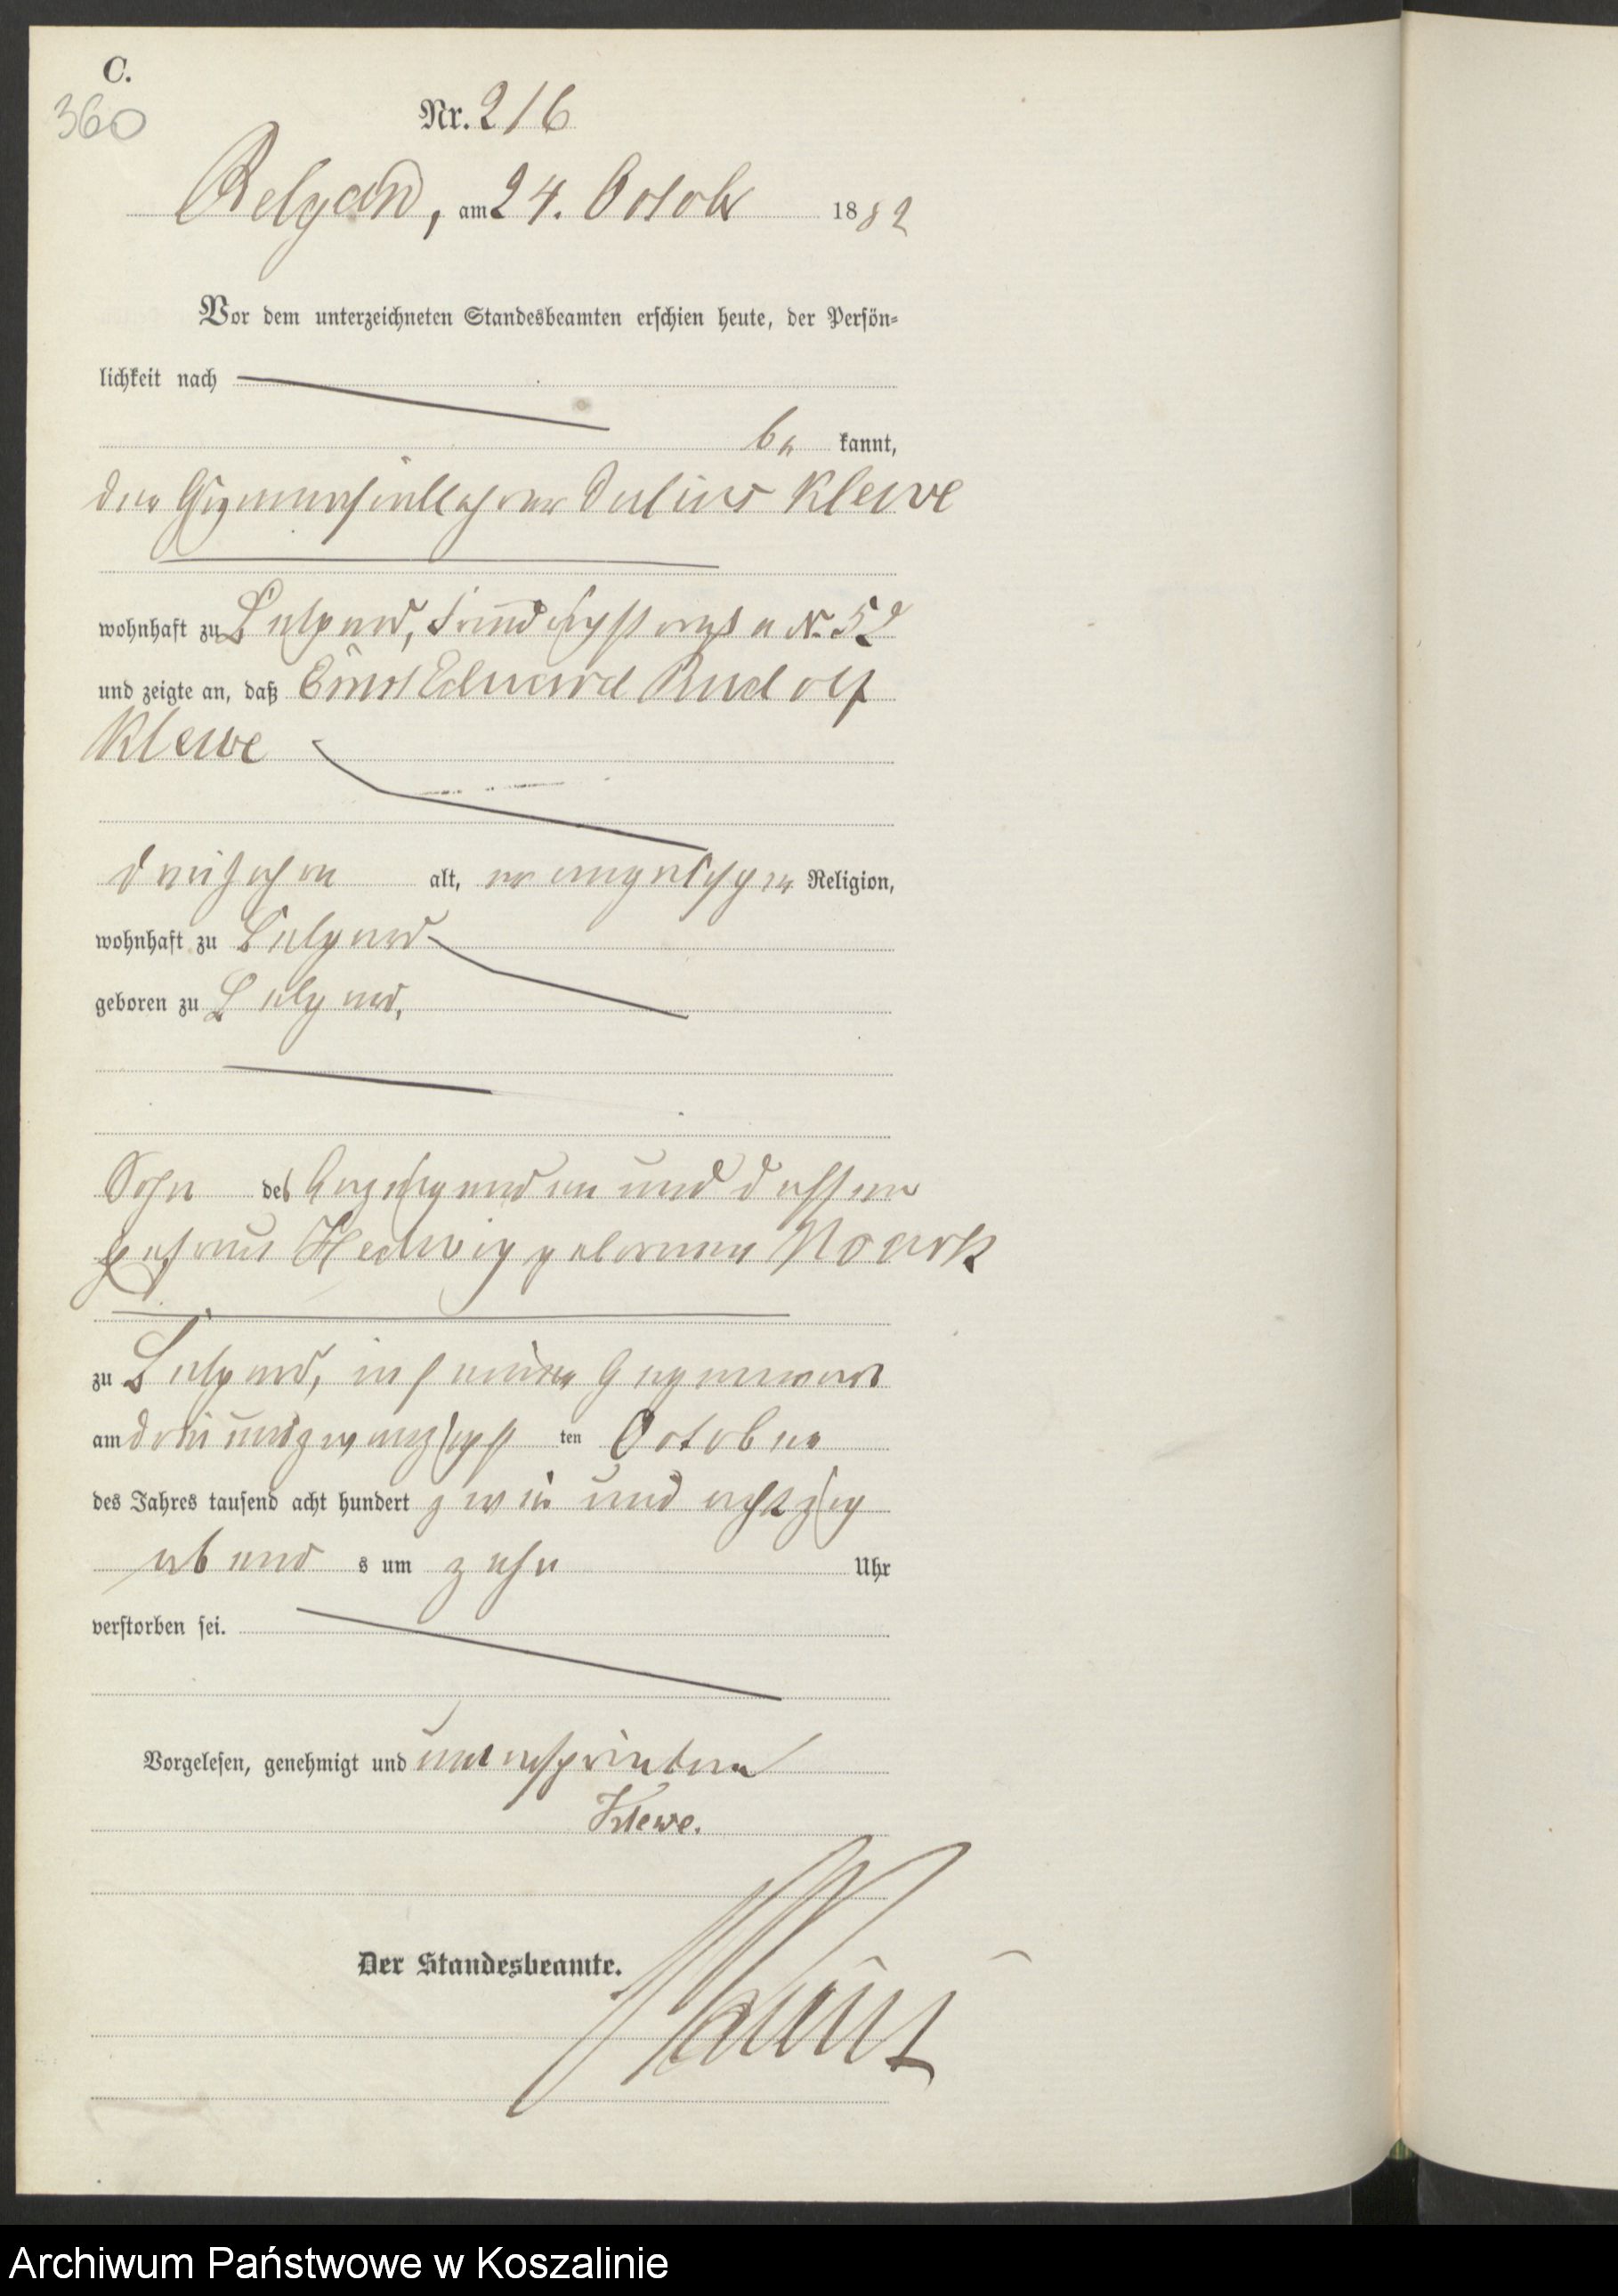 C.
360
Nr. 216
Belgard, am 24. October 1882
Vor dem unterzeichneten Standesbeamten erschien heute, der Persön-
lichkeit nach
be kannt,
der Gymnasiallehrer Julius Klewe
wohnhaft zu Belgard, No. 52
und zeigte an, daß Ernst Eduard Rudolf
Klewe
alt, evangelischer Religion,
wohnhaft zu Belgard
geboren zu Belgard,
Sohn des Anzeigenden und dessen
Ehefrau Hedwig geborenen Noack
zu Belgard, in seiner Gegenwart
am drei und zwanzigst ten October
des Jahres tausend acht hundert zwei und achtzig
abend s um zehn Uhr
verstorben sei.
Vorgelesen, genehmigt und unterschrieben
Klewe.
Der Standesbeamte.
Archiwum Państwowe w Koszalinie